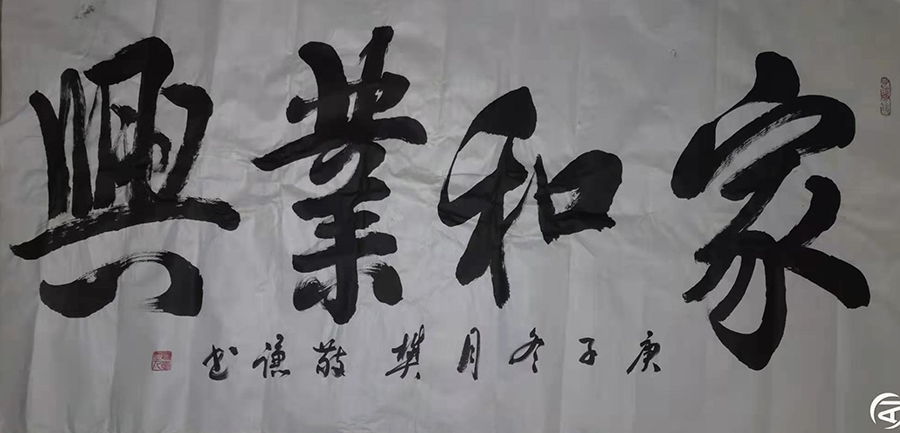 家和業興
庚子冬月樊敬谦书